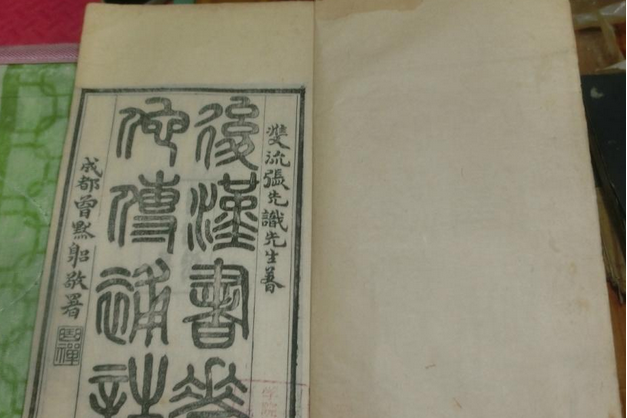 雙流張先識先生著
後漢書華
佗傳補註
成都曾默躳敬署